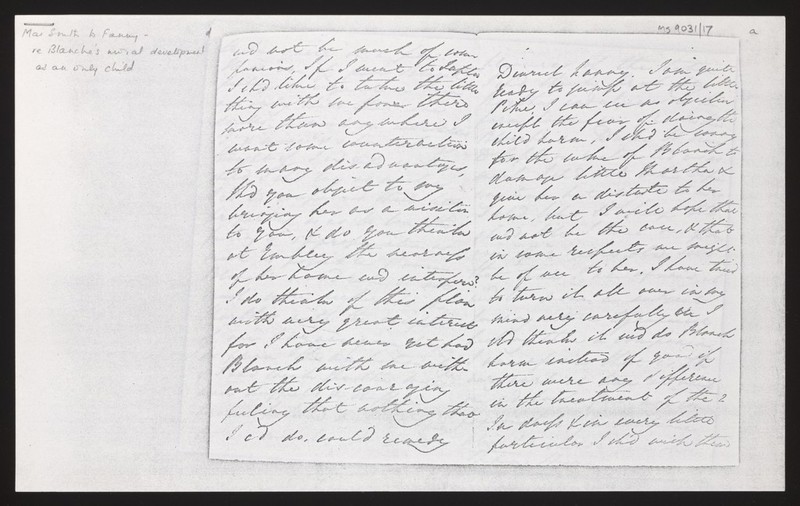 Mai Smith to Fanny -
re Blanche's moral development
as an only child
Ms 9031/17
a
Dearest Fanny. I am quite
ready to jump at the little
I can see no objection
except the fear of doing the
child harm, I shd be sorry
for the sake of Blanch to
damage little Martha &
give her a distaste to her
home, but I will hope that
wd not be the case, & that
in some respects we might
be of use to her, I have tried
to turn it all over in my
mind very carefully
shd think it wd do Blanch
harm instead of good if
there were any difference
in the treatment of the 2
In dress & in every little
particular I shd wish them
wd not be much of com
panion, If I went to
I shd like to take the little
thing with me from there
more than anywhere I
want some counteraction
to many disadvantages,
Shd you object to my
bringing her as a visitor
to you, & do you think
at Embley the nearness
of her home wd interfere?
I do think of this plan
with very great interest
for I have never yet had
Blanch with me with-
out the discouraging
feeling that nothing that
I cd do, could remedy